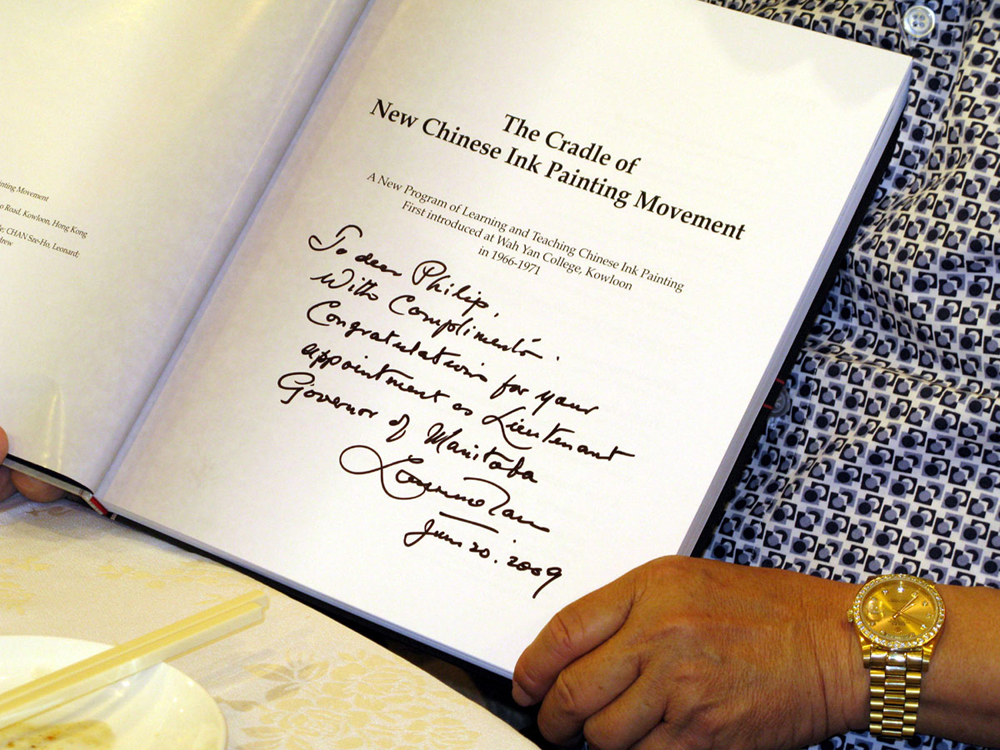 inting Movement
o Road, Kowloon, Hong Kong
CHAN Sze-Ho, Leonard:
drew
The Cradle of
New Chinese Ink Painting Movement
A New Program of Learning and Teaching Chinese Ink Painting
First introduced at Wah Yan College, Kowloon
in 1966-1971
To dear Philip,
With Compliments.
Congratulations for your
appointment as Lieutenant
Governor of Manitoba
June 20. 2009